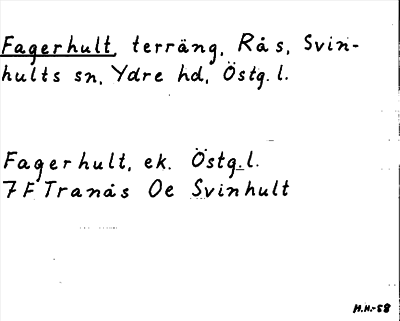 Fagerhult, terräng, Rås, Svin-
hults sn, Ydre hd, Östg. l.
Fagerhult, ek. Östg. l.
7F Tranås Oe Svinhult
H.H.-58